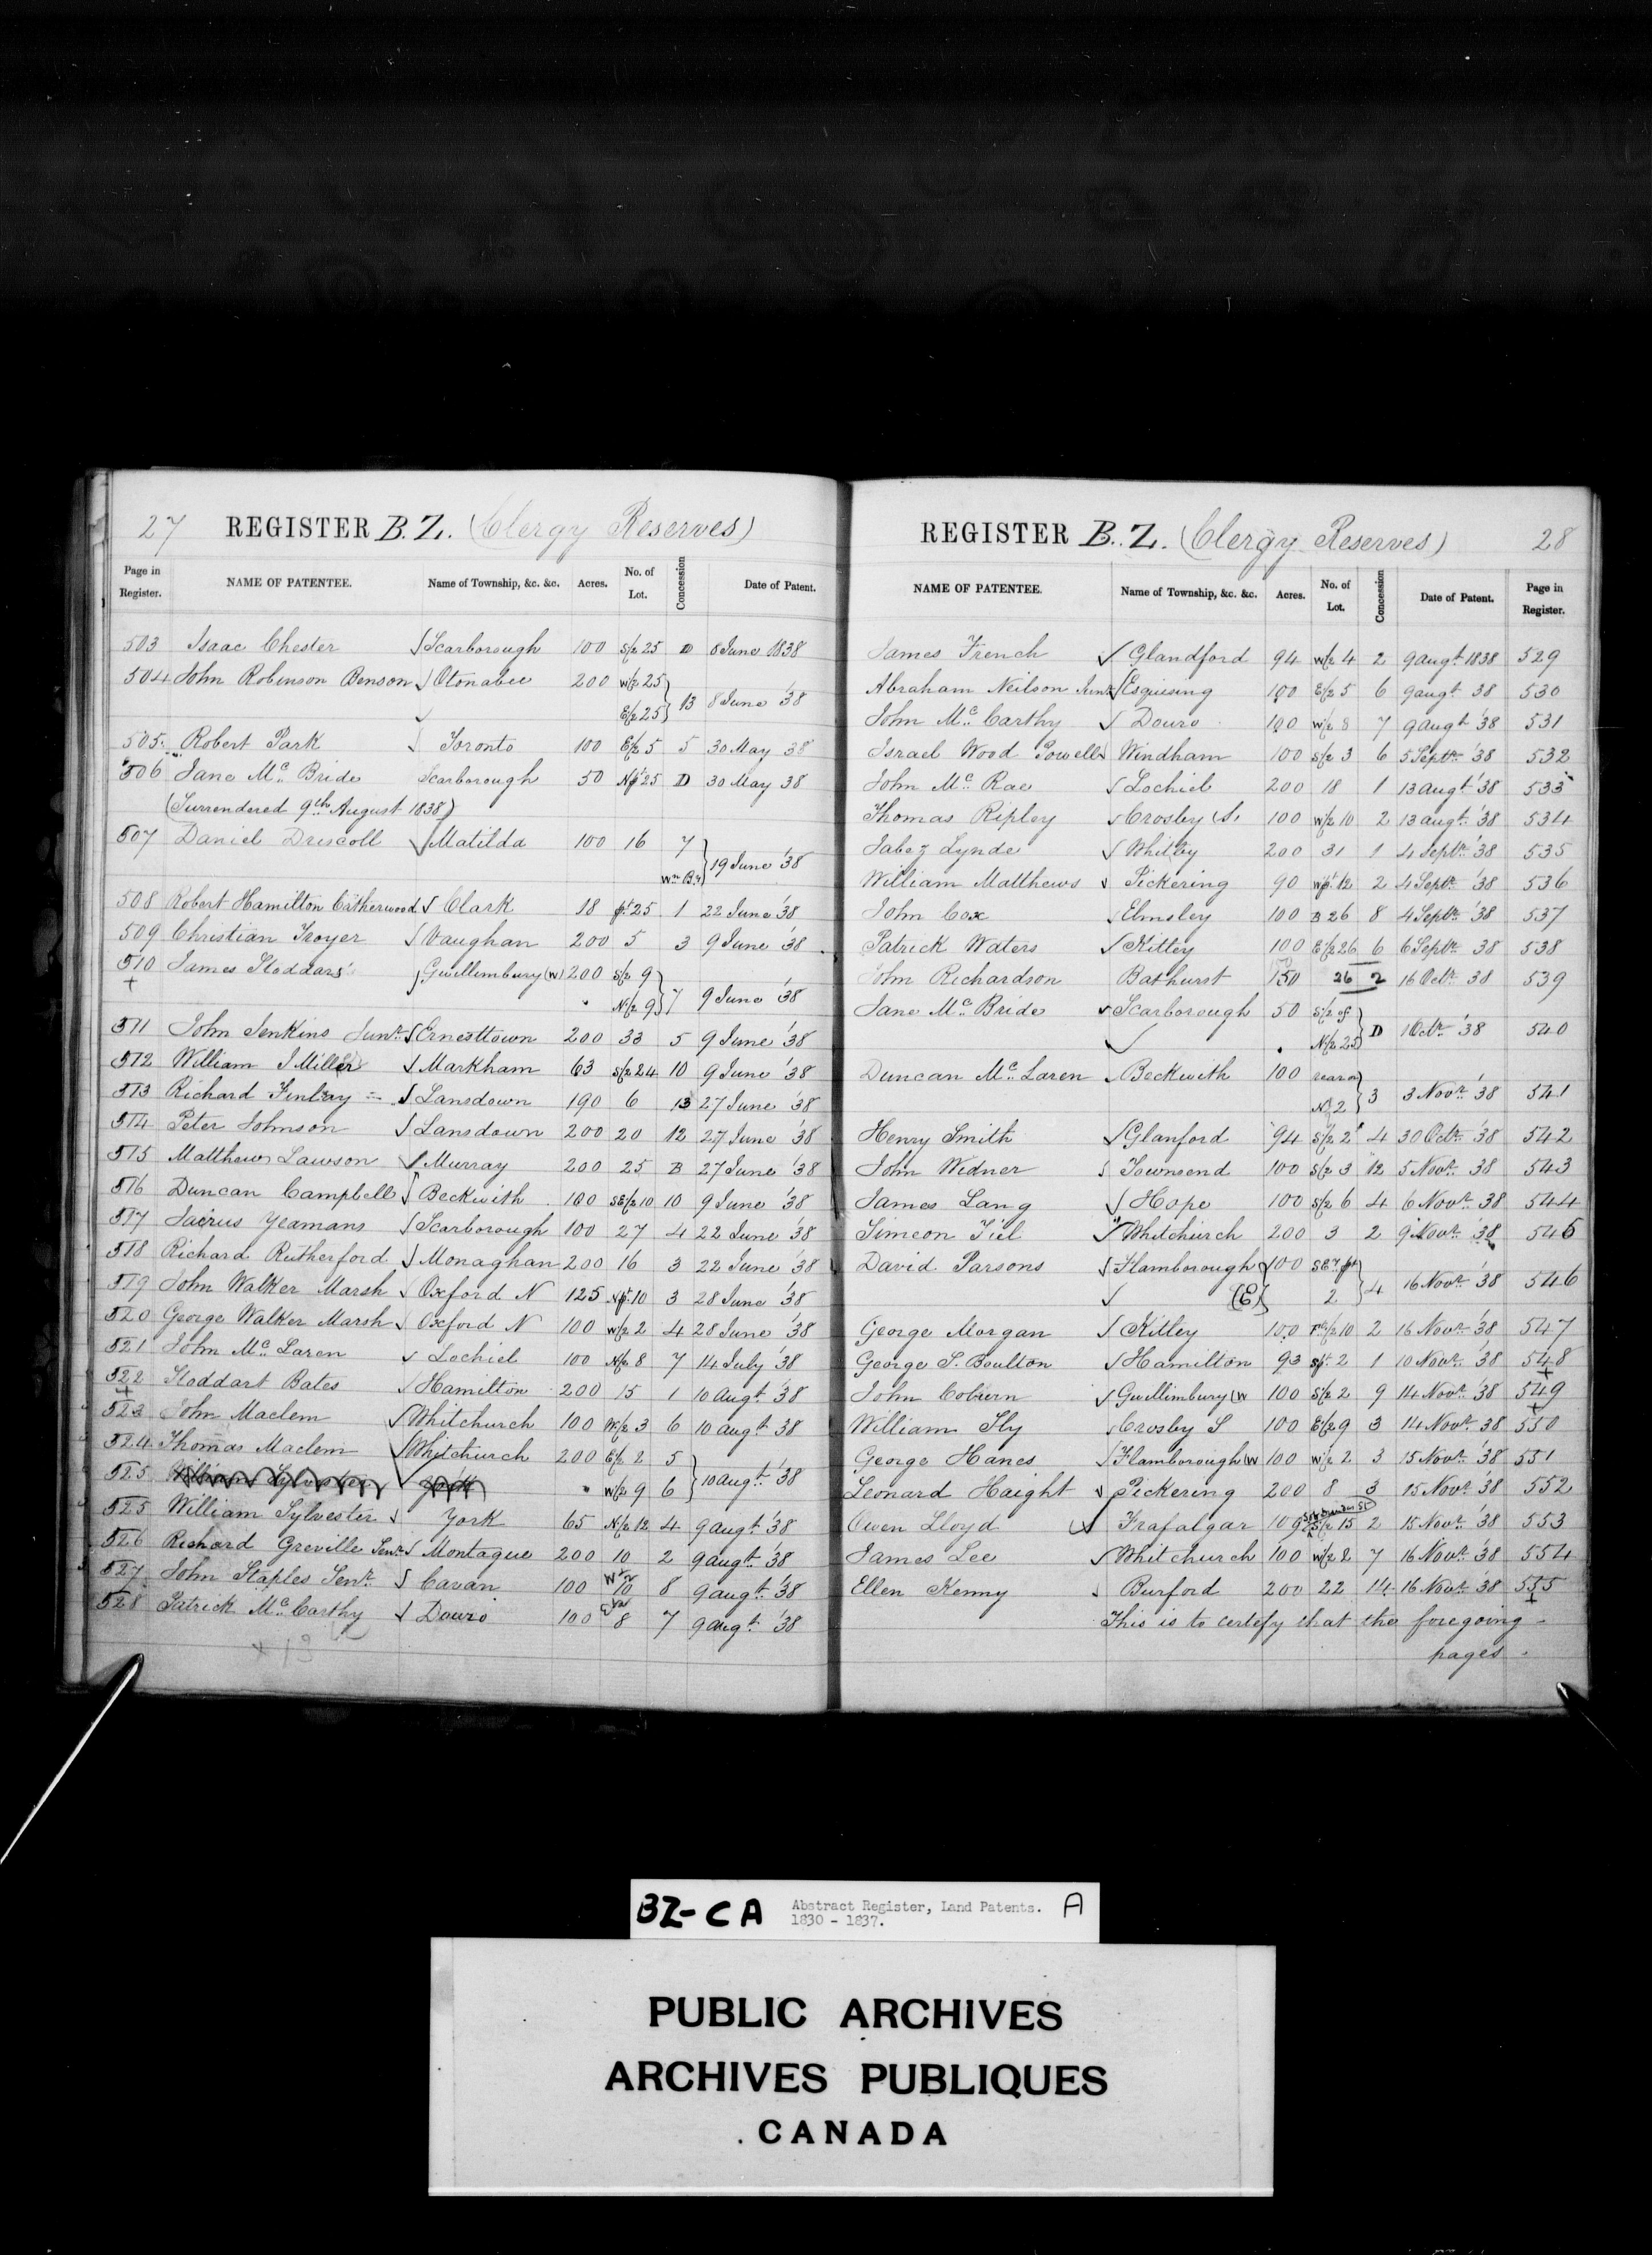 27 REGISTER B.Z. (Clergy Reserves)
Page in Register. NAME OF PATENTEE. Name of Township, &c. &c. Acres. No. of Lot. Concession Date of Patent.
503 Isaac Chester √ Scarborough 100 S/2 25 D 8 June 1838
504 John Robinson Benson √ Otonabee 200 W/2 25
√ E/2 25 } 13 8 June '38
505 Robert Park √ Toronto 100 E/2 5 5 30 May 38
506 Jane Mc Bride Scarborough 50 N pt 25 D 30 May 38
(Surrendered 9th August 1838)
507 Daniel Driscoll √ Matilda 100 16 7
} 19 June '38
508 Robert Hamilton Catherwood √ Clark 18 pt 25 1 22 June '38
509 Christian Troyer √ Vaughan 200 5 3 9 June '38
510 James Stoddars √ Gwillimbury (W) 200 S/2 9
+ " N/2 9 } 7 9 June '38
511 John Jenkins Junr √ Ernesttown 200 33 5 9 June '38
512 William J Miller √ Markham 63 S/2 24 10 9 June '38
513 Richard Finlay √ Lansdown 190 6 13 27 June '38
514 Peter Johnson √ Lansdown 200 20 12 27 June '38
515 Matthew Lawson √ Murray 200 25 B 27 June '38
516 Duncan Campbell √ Beckwith 100 SE/2 10 10 9 June '38
517 Jairus Yeamans √ Scarborough 100 27 4 22 June '38
518 Richard Rutherford √ Monaghan 200 16 3 22 June '38
519 John Walker Marsh √ Oxford N 125 N pt 10 3 28 June '38
520 George Walker Marsh √ Oxford N 100 W/2 2 4 28 June '38
521 John Mc Laren √ Lochiel 100 N/2 8 7 14 July '38
522 Stoddart Bates √ Hamilton 200 15 1 10 Augt '38
+
523 John Maclem √ Whitchurch 100 W/2 3 6 10 Augt '38
524 Thomas Maclem √ Whitchurch 200 E/2 2 5
525 William Sylvester √ York " W/2 9 6 } 10 Augt '38
525 William Sylvester √ York 65 N/2 12 4 9 Augt '38
526 Richard Greville Senr √ Montague 200 10 2 9 Augt '38
527 John Staples Senr √ Cavan 100 W 1/2 10 8 9 Augt '38
528 Patrick Mc Carthy √ Douro 100 E 1/2 8 7 9 Augt '38
REGISTER B.Z. (Clergy Reserves) 28
NAME OF PATENTEE. Name of Township, &c. &c. Acres. No. of Lot. Concession Date of Patent. Page in Register.
James French √ Glandford 94 W/2 4 2 9 Augt 1838 529
Abraham Neilson Junr √ Esquesing 100 E/2 5 6 9 Augt 38 530
John Mc Carthy √ Douro 100 W/2 8 7 9 Augt '38 531
Israel Wood Powell √ Windham 100 S/2 3 6 5 Septr '38 532
John Mc Rae √ Lochiel 200 18 1 13 Augt '38 533
Thomas Ripley √ Crosby (S. 100 W/2 10 2 13 Augt '38 534
Jabez Lynde √ Whitby 200 31 1 4 Septr '38 535
William Matthews √ Pickering 90 W pt 12 2 4 Septr '38 536
John Cox √ Elmsley 100 B 26 8 4 Septr '38 537
Patrick Waters √ Kitley 100 E/2 26 6 6 Septr 38 538
John Richardson Bathurst 150 26 2 16 Octr 38 539
Jane Mc Bride √ Scarborough 50 S/2 of
√ " N/2 25 } D 1 Octr '38 540
Duncan Mc Laren √ Beckwith 100 rear or
N/2 2 } 3 3 Novr '38 541
Henry Smith √ Glanford 94 S/2 2 4 30 Octr '38 542
John Widner √ Townsend 100 S/2 3 12 5 Novr 38 543
James Lang √ Hope 100 S/2 6 4 6 Novr 38 544
Simeon Tiel √ Whitchurch 200 3 2 9 Novr '38 545
David Parsons √ Flamborough 100 SEy pt
√ (E) 2 } 4 16 Novr '38 546
George Morgan √ Kitley 100 10 2 16 Novr '38 547
George S. Boulton √ Hamilton 93 S pt 2 1 10 Novr '38 548
+
John Coburn √ Gwillimbury (W 100 S/2 2 9 14 Novr '38 549
+
William Sly √ Crosby S 100 E/2 9 3 14 Novr 38 550
George Hanes √ Flamborough (W 100 W/2 2 3 15 Novr '38 551
Leonard Haight √ Pickering 200 8 3 15 Novr '38 552
Owen Lloyd √ Trafalgar 109 S/2 15 2 15 Novr '38 553
James Lee √ Whitchurch 100 W/2 2 7 16 Novr '38 554
Ellen Kenny √ Burford 200 22 14 16 Novr '38 555
+
This is to certify that the foregoing
pages
BZ-CA Abstract Register, Land Patents. A
1830 - 1837.
PUBLIC ARCHIVES
ARCHIVES PUBLIQUES
CANADA